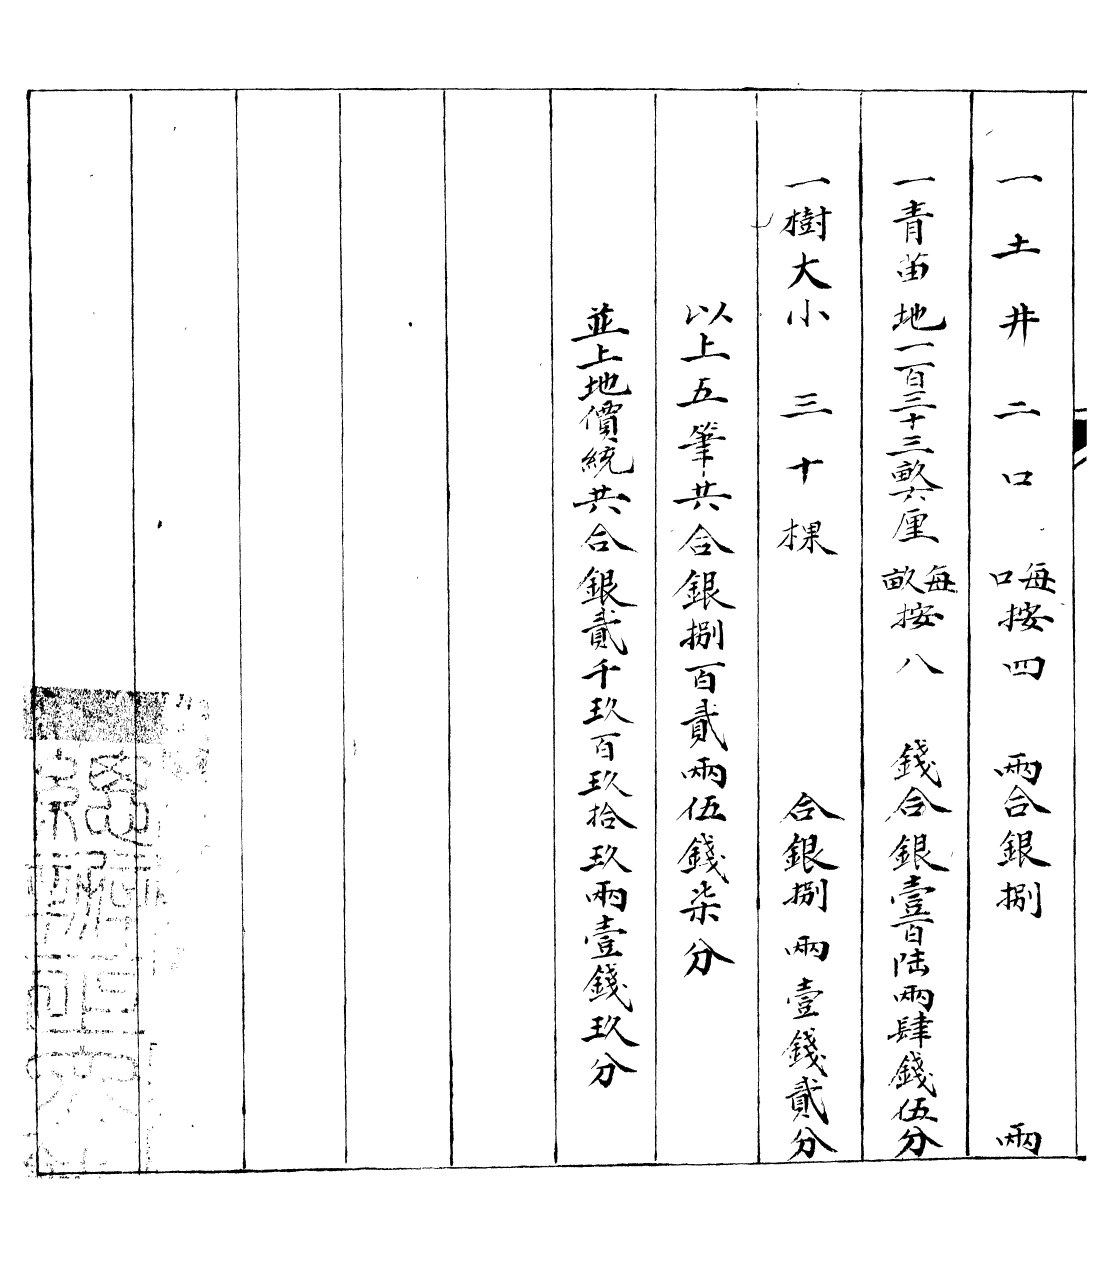 一土井二口每口按四兩合銀捌兩
一青苗地一百三十三畝六厘每畝按八錢合銀壹百陸兩肆錢伍分
一樹大小三十棵合銀捌兩壹錢貳分
以上五筆共合銀捌百貳兩伍錢柒分
並上地價統共合銀貳千玖百玖拾玖兩壹錢玖分